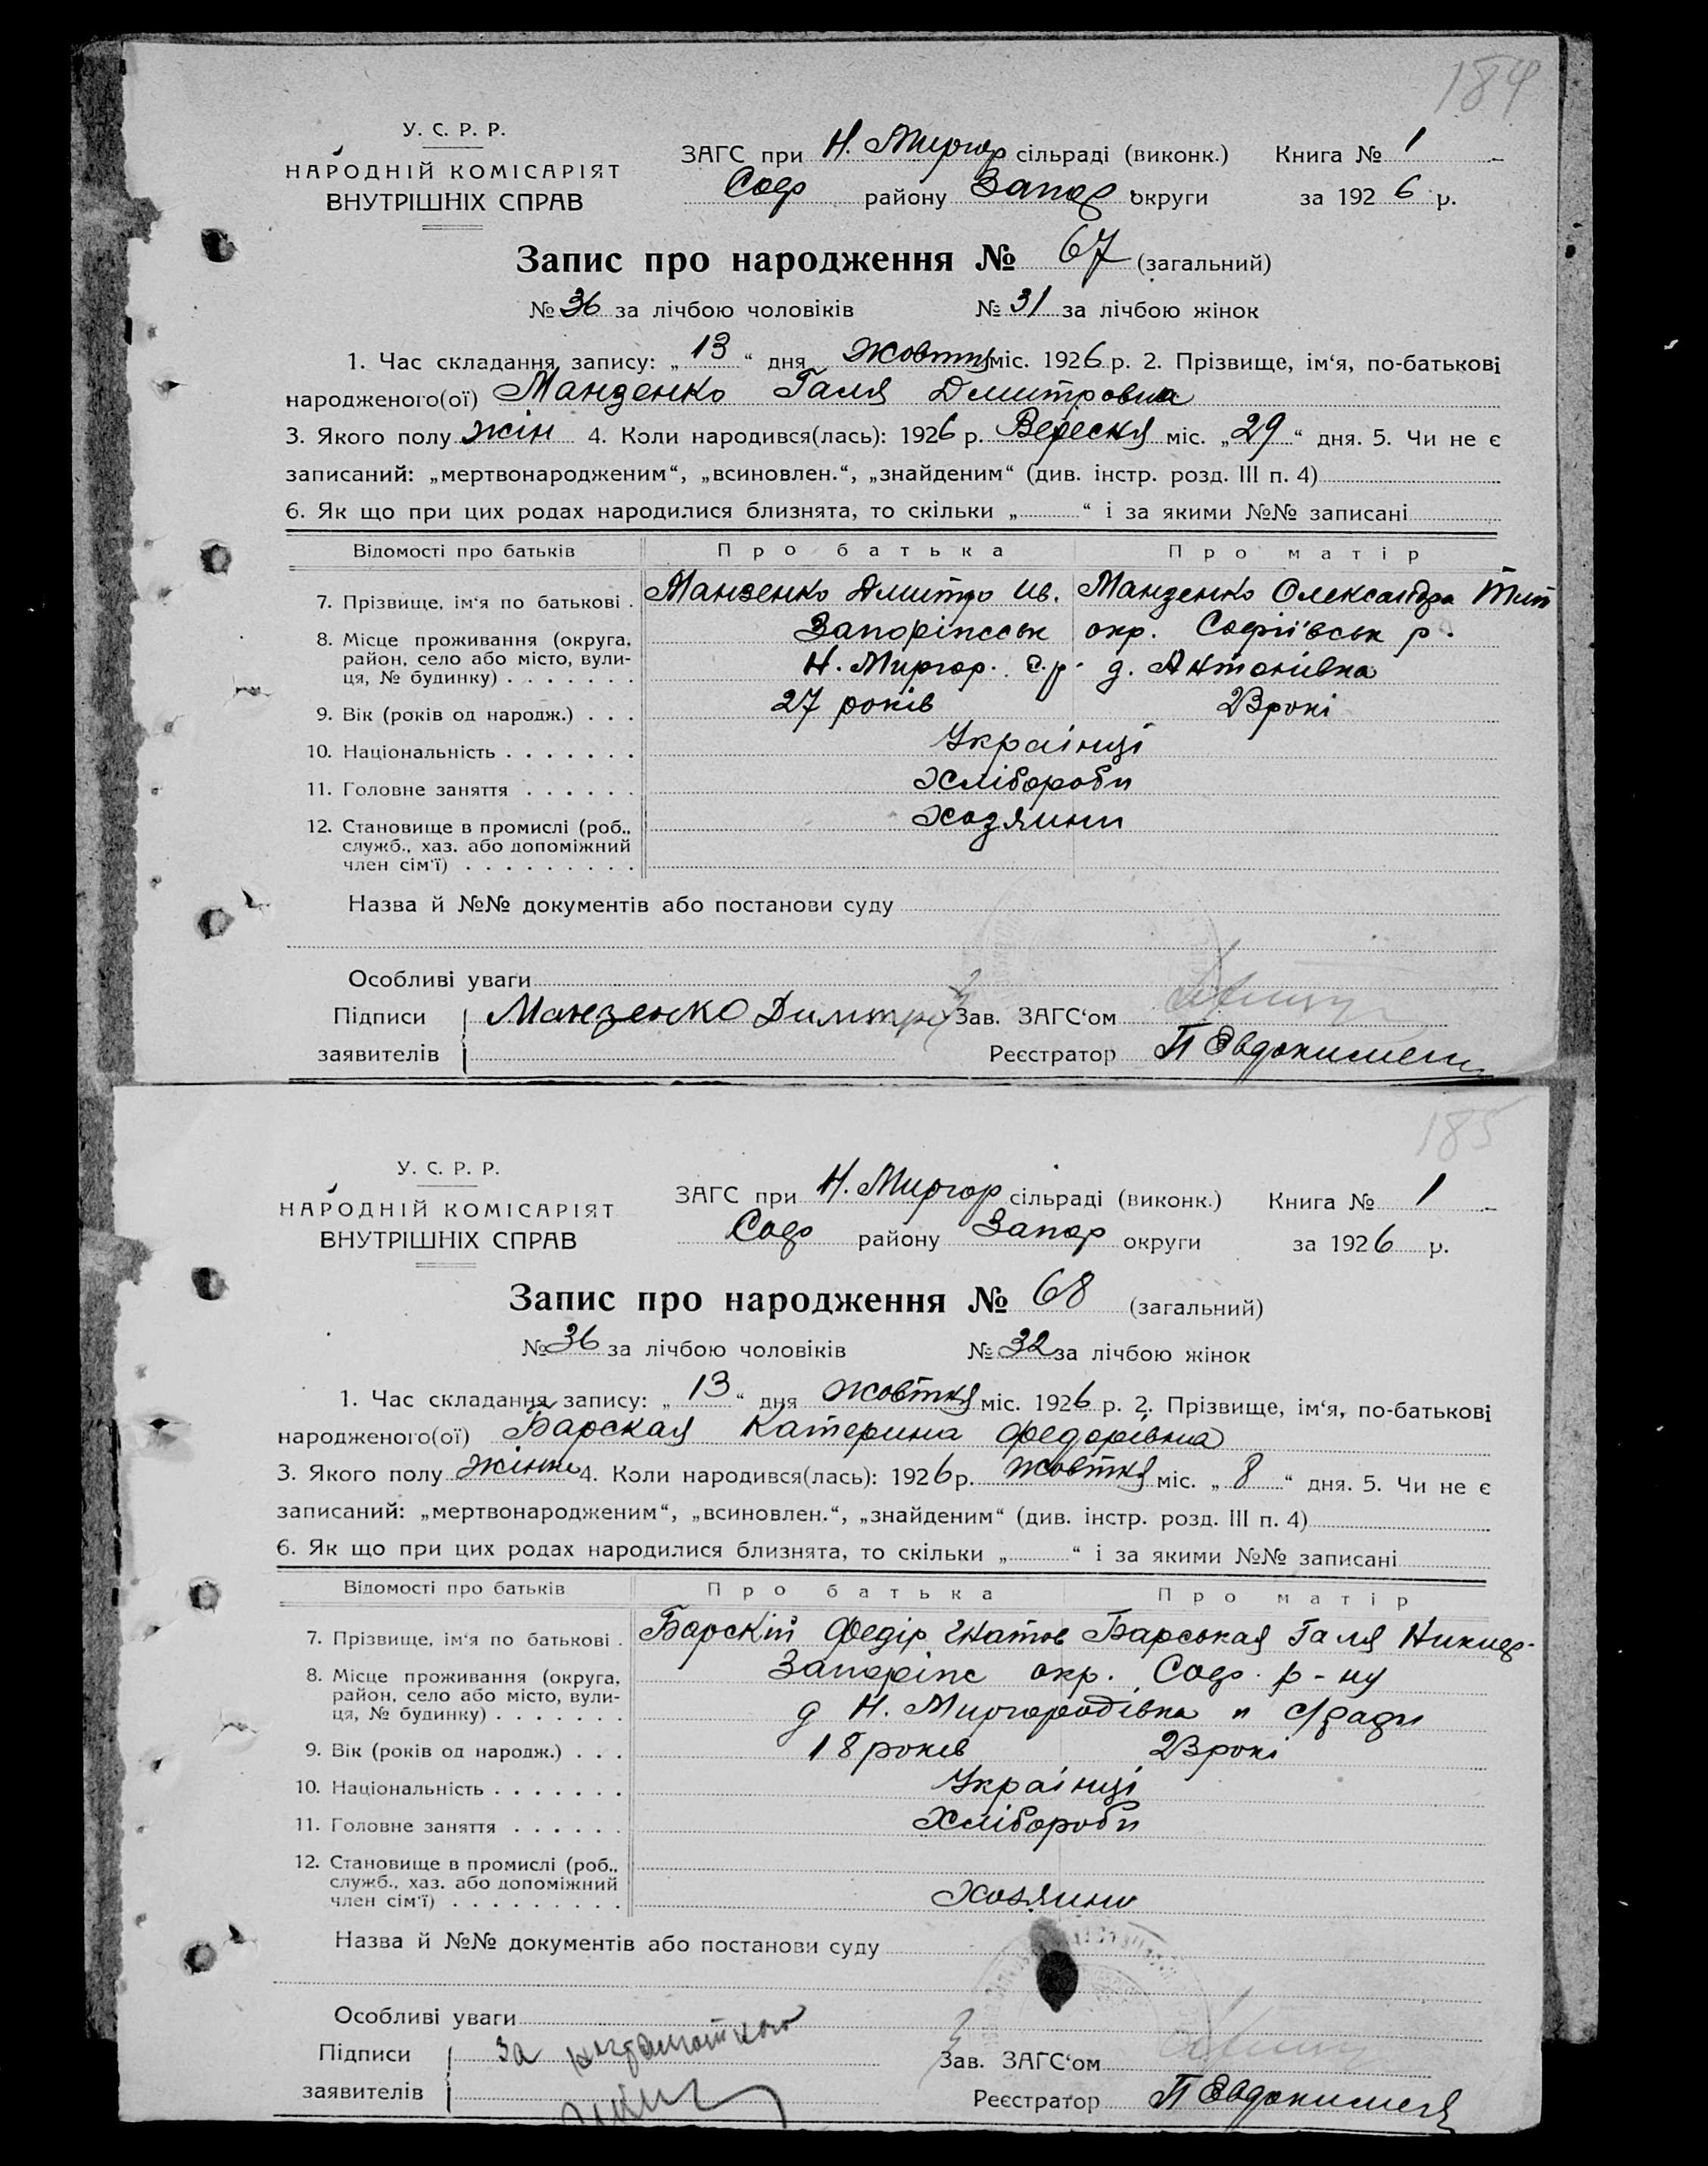 184
У. С. Р. Р.
НАРОДНІЙ КОМІСАРІЯТ
ВНУТРІШНІХ СПРАВ
ЗАГС при Н. Миргор сільраді (виконк.) Книга № 1
Соф району Запор округи за 1926 р.
Запис про народження № 67 (загальний)
№ 36 за лічбою чоловіків № 31 за лічбою жінок
1. Час складання запису: „13“ дня жовтня міс. 1926 р. 2. Прізвище, ім‘я, по-батькові
народженого(ої) Манзенко Галя Дмитровна
3. Якого полу жін 4. Коли народився(лась): 1926 р. Вересня міс. „29“ дня. 5. Чи не є
записаний: „мертвонародженим“, „всиновлен.“, „знайденим“ (див. інстр. розд. III п. 4)
6. Як що при цих родах народилися близнята, то скільки „ “ і за якими №№ записані
Відомості про батьків Про батька Про матір
7. Прізвище, ім‘я по батькові . Манзенко Дмитро Ив. Манзенко Олександра
8. Місце проживання (округа, Запоріпсськ окр. Софіївськ р.
район, село або місто, вули- Н. Миргор. с.р. д. Антонівка
ця, № будинку) . . . . . . .
9. Вік (років од народж.) . . . 27 років 23 рокі
10. Національність . . . . . . . Украінці
11. Головне заняття . . . . . . Хлібороби
12. Становище в промислі (роб., Хозяини
служб., хаз. або допоміжний
член сім‘ї) . . . . . . . . .
Назва й №№ документів або постанови суду
Особливі уваги
Підписи Манзенко Димитрій Зав. ЗАГС‘ом
заявителів Реєстратор П Євдокимен
185
У. С. Р. Р.
НАРОДНІЙ КОМІСАРІЯТ
ВНУТРІШНІХ СПРАВ
ЗАГС при Н. Миргор сільраді (виконк.) Книга № 1
Соф району Запор округи за 1926 р.
Запис про народження № 68 (загальний)
№ 36 за лічбою чоловіків № 32 за лічбою жінок
1. Час складання запису: „13“ дня жовтня міс. 1926 р. 2. Прізвище, ім‘я, по-батькові
народженого(ої) Барская Катерина Федорівна
3. Якого полу жіноч 4. Коли народився(лась): 1926 р. жовтня міс. „8“ дня. 5. Чи не є
записаний: „мертвонародженим“, „всиновлен.“, „знайденим“ (див. інстр. розд. III п. 4)
6. Як що при цих родах народилися близнята, то скільки „ “ і за якими №№ записані
Відомості про батьків Про батька Про матір
7. Прізвище, ім‘я по батькові . Барскій Федір Гнатов Барськая Галя Никиф.
8. Місце проживання (округа, Запоріпс окр. Соф. р-ну
район, село або місто, вули- д Н. Миргородівка п с/ради
ця, № будинку) . . . . . . .
9. Вік (років од народж.) . . . 18 років 23 рокі
10. Національність . . . . . . . Украінці
11. Головне заняття . . . . . . Хлібороби
12. Становище в промислі (роб.,
служб., хаз. або допоміжний Хозяини
член сім‘ї) . . . . . . . . .
Назва й №№ документів або постанови суду
Особливі уваги
Підписи За неграмотного Зав. ЗАГС‘ом
заявителів Реєстратор П Євдокимен